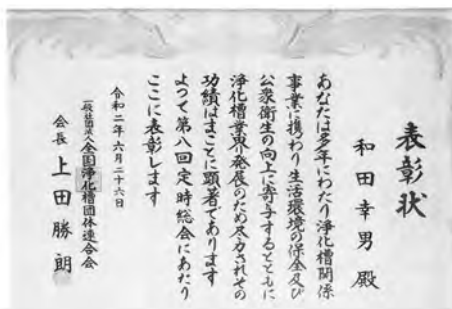 表彰状
和田幸男 殿
あなたは多年にわたり浄化槽関係
事業に携わり生活環境の保全及び
公衆衛生の向上に寄与するとともに
浄化槽業界発展のため尽力されその
功績はまことに顕著であります
よって第八回定時総会にあたり
ここに表彰します
令和二年六月二十六日
一般社団法人全国浄化槽団体連合会
会長 上田勝朗